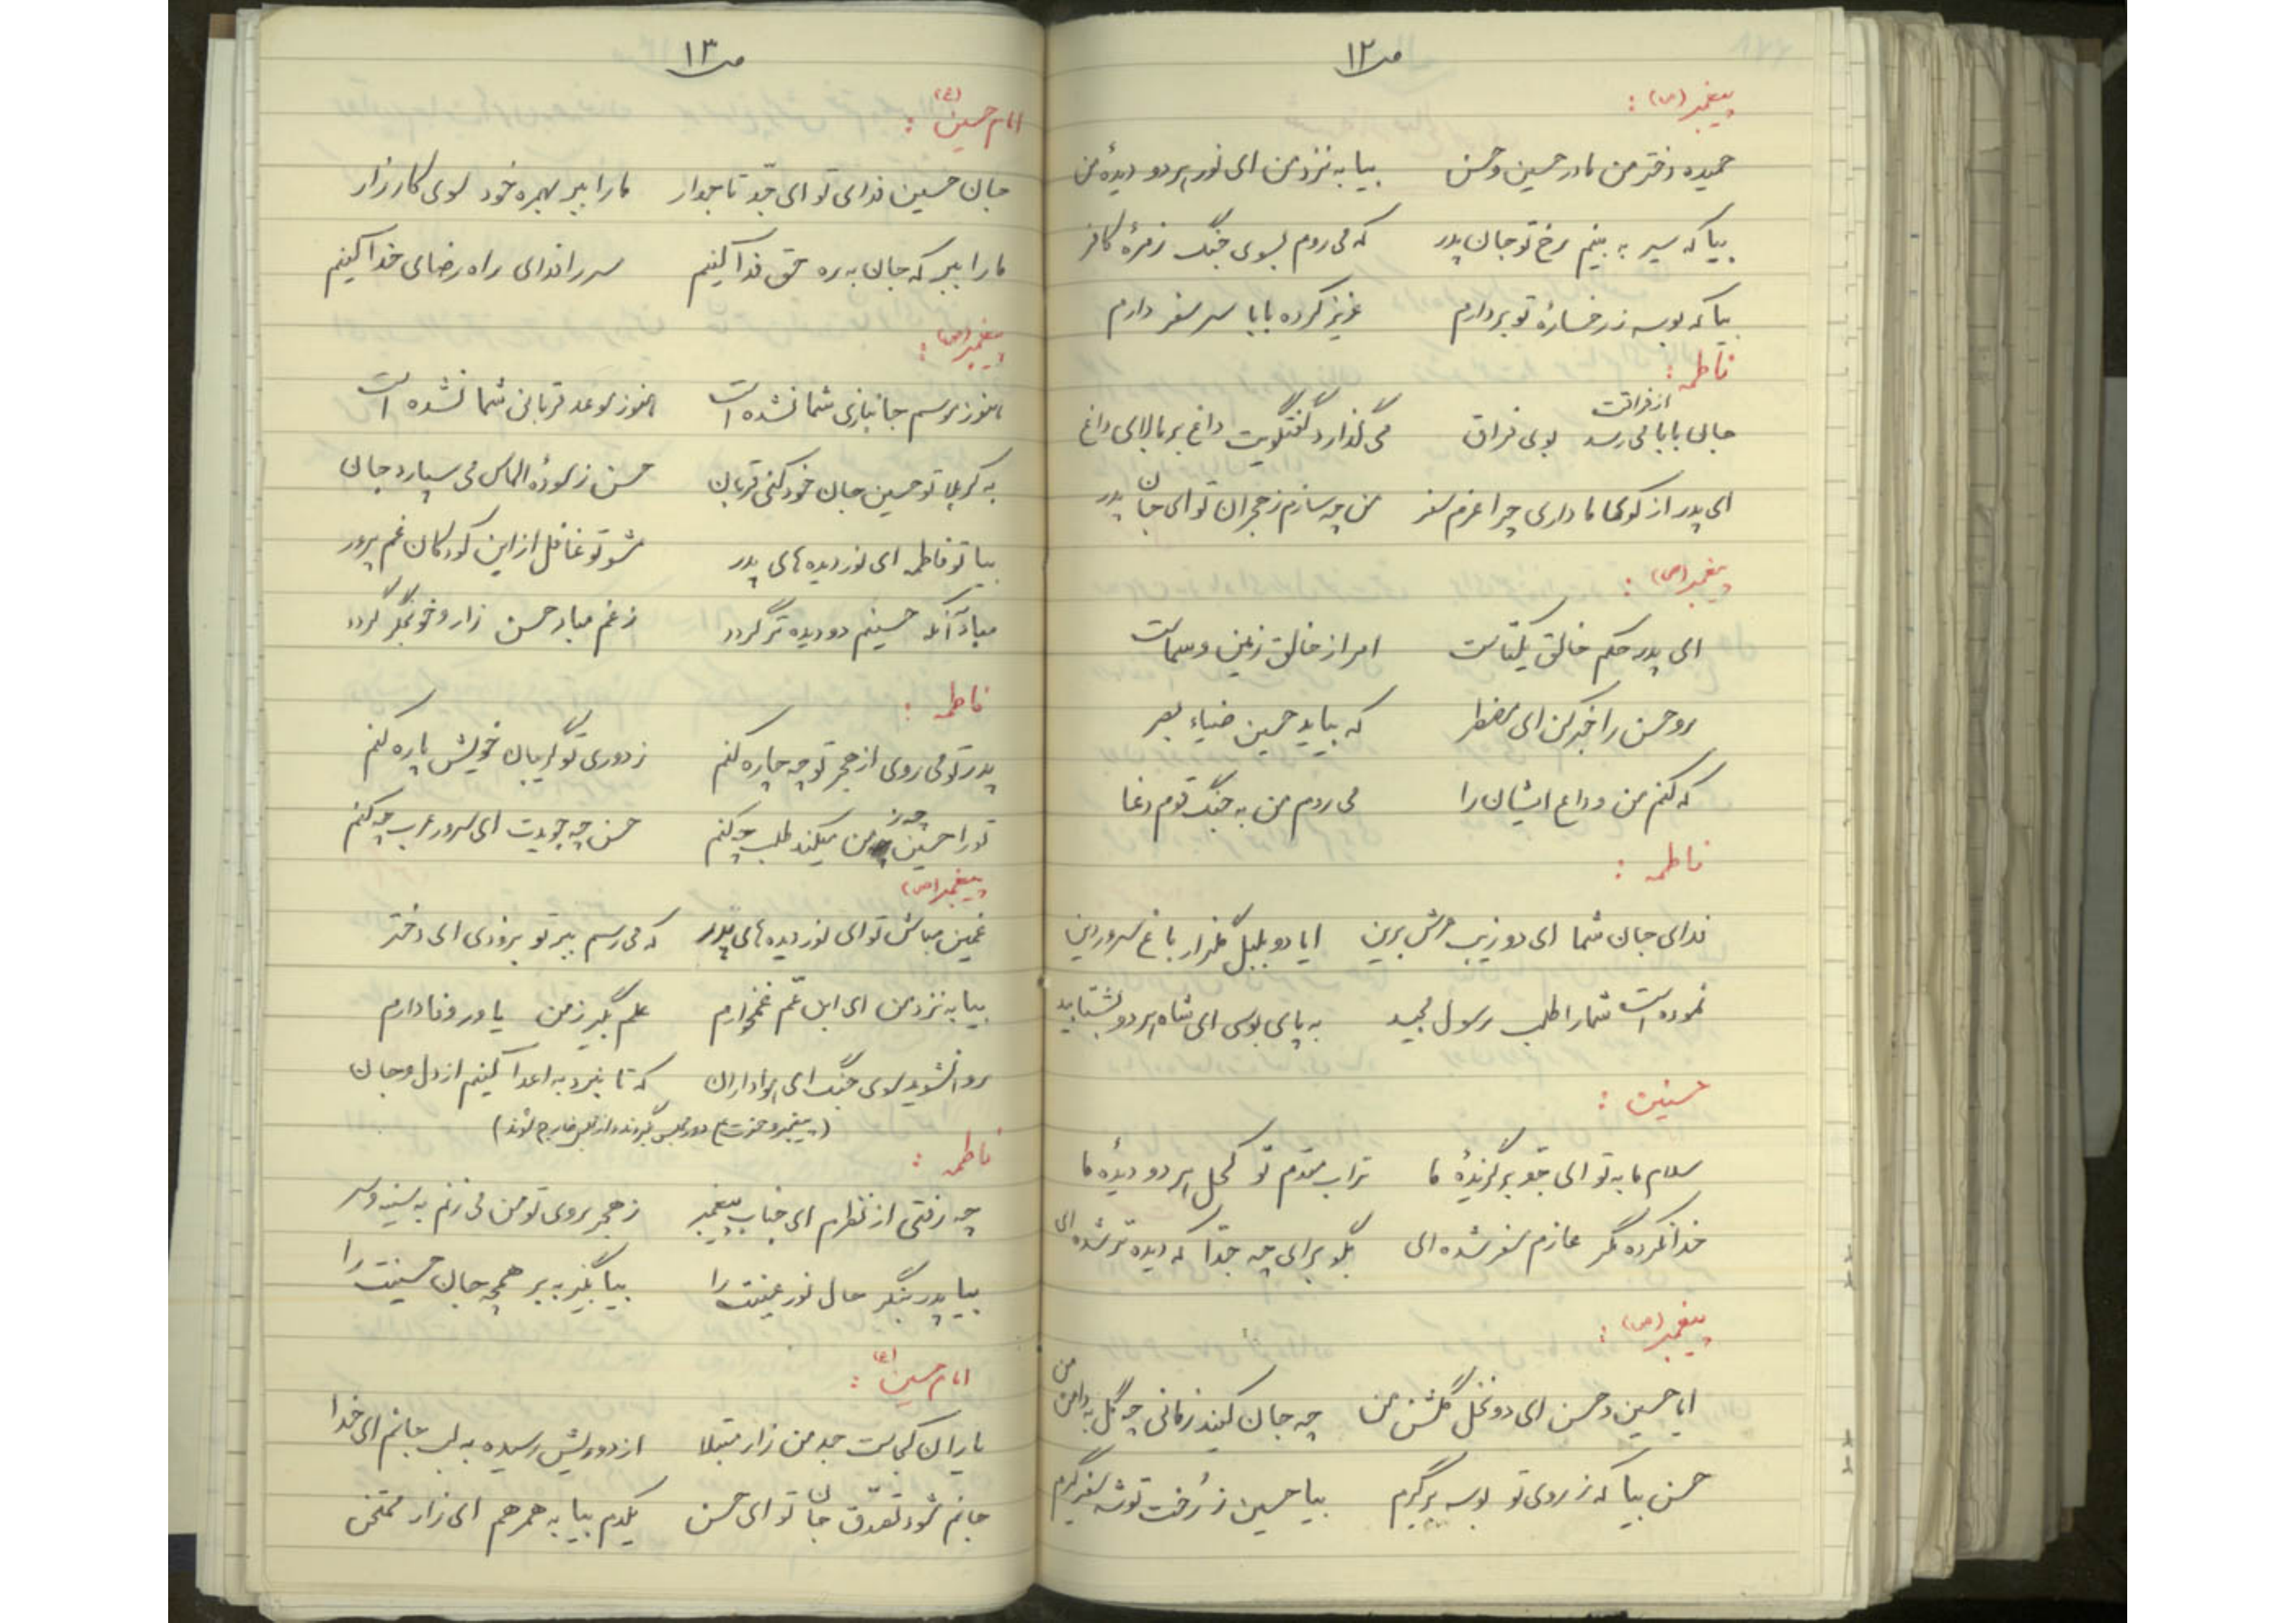 ص ۱۲
پیغمبر (ص) :
حمیده دختر من مادر حسین و حسن بیا به نزد من ای نور هر دو دیدهٔ من
بیا که سیر به بینم رخ تو جان پدر که می روم بسوی جنگ زمرهٔ کافر
بیا که بوسه ز رخسارهٔ تو بردارم عزیز کرده بابا سر سفر دارم
فاطمه :
از فراقت
جان بابا می رسد بوی فراق می گذارد گفتگویت داغ بر بالای داغ
ای پدر از کوی ما داری چرا عزم سفر من چه سازم ز هجران تو ای جان پدر
پیغمبر (ص) :
ای پدر حکم خالق یکتاست امر از خالق زمین و سماست
رو حسن را خبر کن ای مضطر که بیاید حسین ضیاء بصر
که کنم من وداع ایشان را می روم من به جنگ قوم دغا
فاطمه :
فدای جان شما ای دو زیب عرش برین ایا دو بلبل گلزار باغ سرور دین
نموده است شما را طلب رسول مجید به پای بوسی ای شاه هر دو بشتابید
حسنین :
سلام ما به تو ای جد برگزیدهٔ ما تراب مقدم تو کحل هر دو دیدهٔ ما
خدا نکرده مگر عازم سفر شده ای بگو برای چه جدّا که دیده تر شده ای
پیغمبر (ص) :
ایا حسین و حسن ای دو نخل گلشن من چه جان کنید زمانی چه گل به دامن من
حسن بیا که ز روی تو بوسه برگیرم بیا حسین ز رُخت توشه سفر گیرم
ص ۱۳
امام حسین (ع) :
جان حسین فدای تو ای جدّ تاجدار ما را ببر بهمره خود سوی کارزار
ما را ببر که جان به ره حق فدا کنیم سر را فدای راه رضای خدا کنیم
پیغمبر (ص) :
هنوز موسم جانبازی شما نشده است هنوز موعد قربانی شما نشده است
به کربلا تو حسین جان خود کنی قربان حسن ز سودهٔ الماس می سپارد جان
بیا تو فاطمه ای نور دیده های پدر مشو تو غافل از این کودکان غم پرور
مباد آنکه حسینم دو دیده تر گردد ز غم مباد حسن زار و خونجگر گردد
فاطمه :
پدر تو می روی از هجر تو چه چاره کنم ز دوری تو گریبان خویش پاره کنم
چه ز
تو را حسین من میکند طلب چکنم حسن چه جویدت ای سرور عرب چکنم
پیغمبر (ص)
غمین مباش تو ای نور دیده های پدر که می رسم ببر تو بزودی ای دختر
بیا به نزد من ای ابن عّم غمخوارم علم بگیر ز من یاور وفادارم
روانشوید سوی جنگ ای هواداران که تا نبرد به اعدا کنیم از دل و جان
(پیغمبر و حضرت ع دور مجلس بگردند و از مجلس خارج شوند)
فاطمه :
چه رفتی از نظرم ای جناب پیغمبر ز هجر روی تو من می زنم به سینه و سر
بیا پدر بنگر حال نور عینت را بیا بگیر به بر همچه جان حسینت را
امام حسین (ع) :
یاران کجاست جد من زار مبتلا از دوریش رسیده به لب جانم ای خدا
جانم شود تصدّق جان تو ای حسن یکدم بیا به همرهم ای زار ممتحن